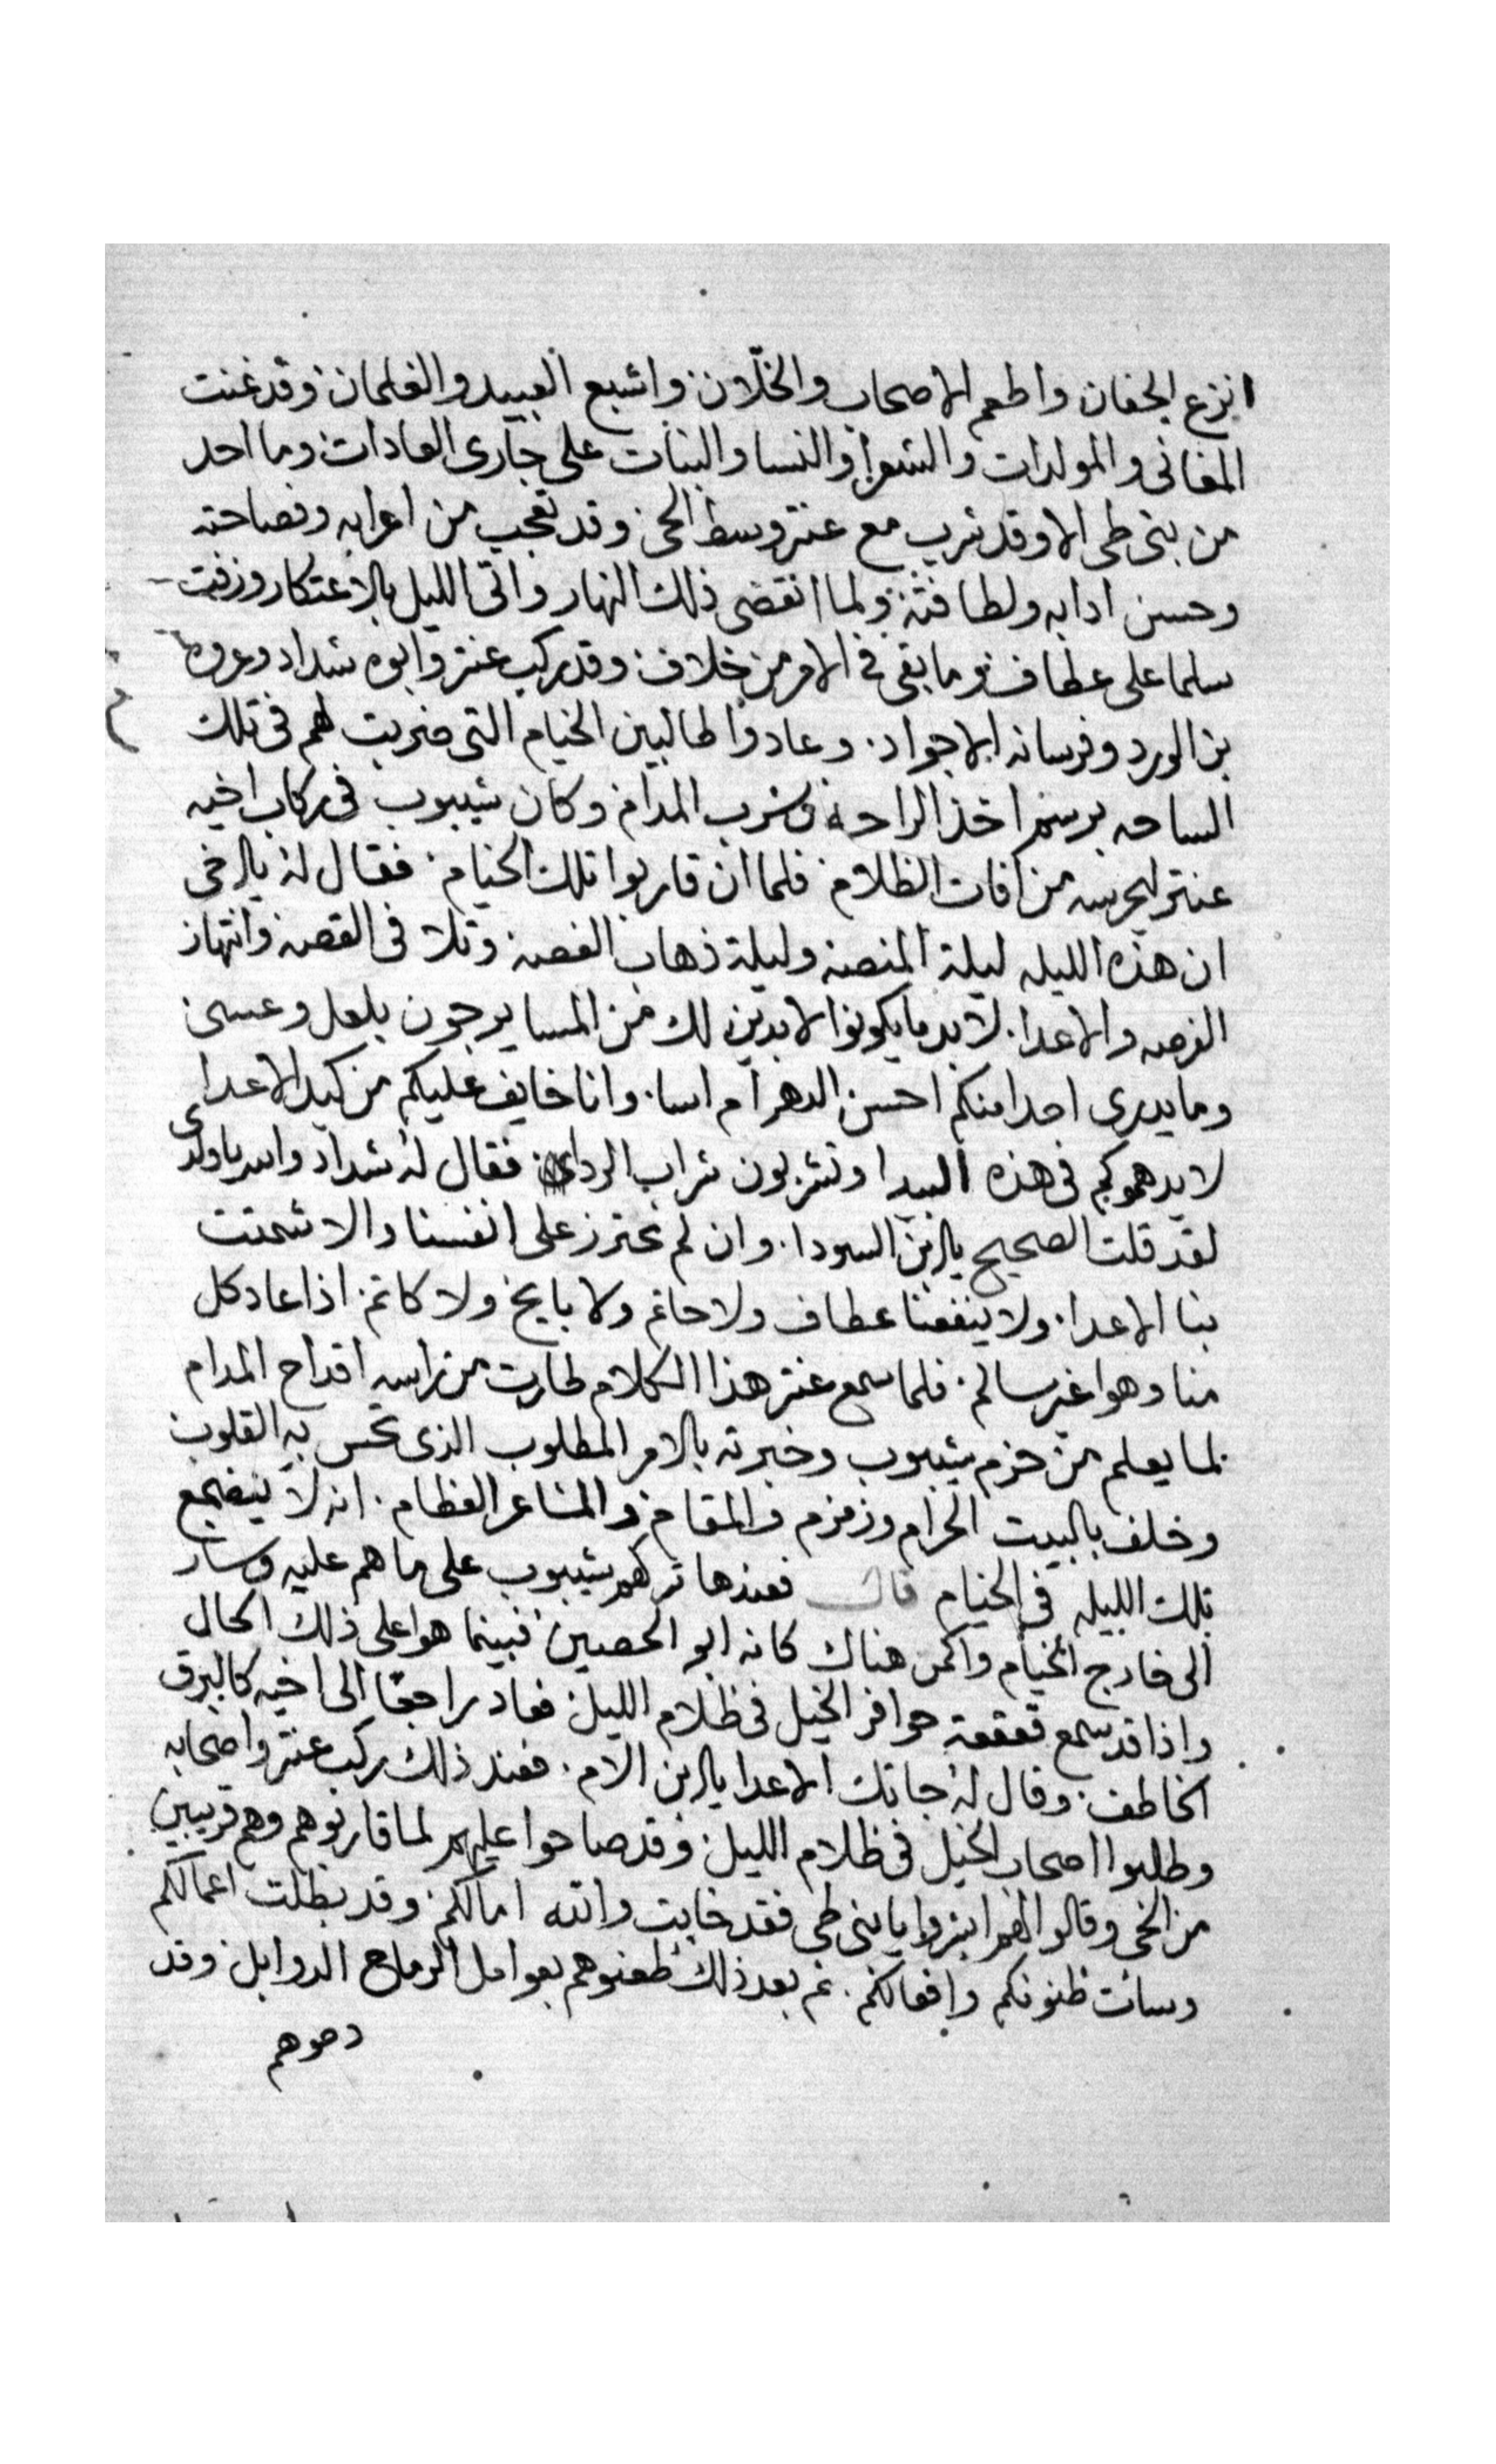 انزع الجفان واطعم الاصحاب والخلّان واشبع العبيد والغلمان وقد غنت
المغانى والمولدات والشعرا والنسا والبنات على جارى العادات وما احد
من بنى طى الا وقد شرب مع عنتر وسط الحى وقد تعجب من اعرابه وفصاحته
وحسن ادابه ولطافته ولما انقضى ذلك النهار واتى الليل بالاعتكار وزفت
سلما على عطاف وما بقى فى الامر من خلاف وقد ركب عنتر وابوه شداد وعروه
بن الورد وفرسانه الاجواد وعادوا طالبين الخيام التى ضربت لهم فى تلك
الساحه برسم اخذ الراحة وشرب المدام وكان شيبوب فى ركاب اخيه
عنتر ليحرسه من افات الظلام فلما ان قاربوا تلك الخيام فقال له يا اخى
ان هذه الليله ليلة المنصه وليلة ذهاب الغصه وتلا فى القصه وانتهاز
الفرصه والاعدا لا بد ما يكونوا لابدين لك من المسا يرجون بلعل وعسى
وما يدرى احدا منكم احسن الدهر ام اسا وانا خايف عليكم من كيد الاعدا
لا يدهموكم فى هذه البيدا وتشربون شراب الردا فقال له شداد والله يا ولدى
لقد قلت الصحيح يا ابن السودا وان لم نحترز على انفسنا والا شمتت
بنا الاعدا ولا ينفعنا عطاف ولا حاتم ولا بايح ولا كاتم اذا عاد كل
منا وهوا غير سالم فلما سمع عنتر هذا الكلام طارت من راسه اقداح المدام
لما يعلم من حزم شيبوب وخبرته بالامر المطلوب الذى تحس به القلوب
وحلف بالبيت الحرام وزمزم والمقام والمشاعر العظام انه لا ينضجع
تلك الليله فى الخيام قال فعندها تركهم شيبوب على ما هم عليه وسار
الى خارج الخيام واكمن هناك كانه ابو الحصين فبينما هوا على ذلك الحال
واذا قد سمع قعقعة حوافر الخيل فى ظلام الليل فعاد راجعا الى اخيه كالبرق
الخاطف وقال له جاتك الاعدا يا ابن الام فعند ذلك ركب عنتر واصحابه
وطلبوا اصحاب الخيل فى ظلام الليل وقد صاحوا عليهم لما قاربوهم وهم قريبين
من الحى وقالوا لهم ابشروا يا بنى طى فقد خابت والله امالكم وقد بطلت اعمالكم
وسائت ظنونكم وافعالكم ثم بعد ذلك طعنوهم بعوامل الرماح الدوابل وقد
دموهم